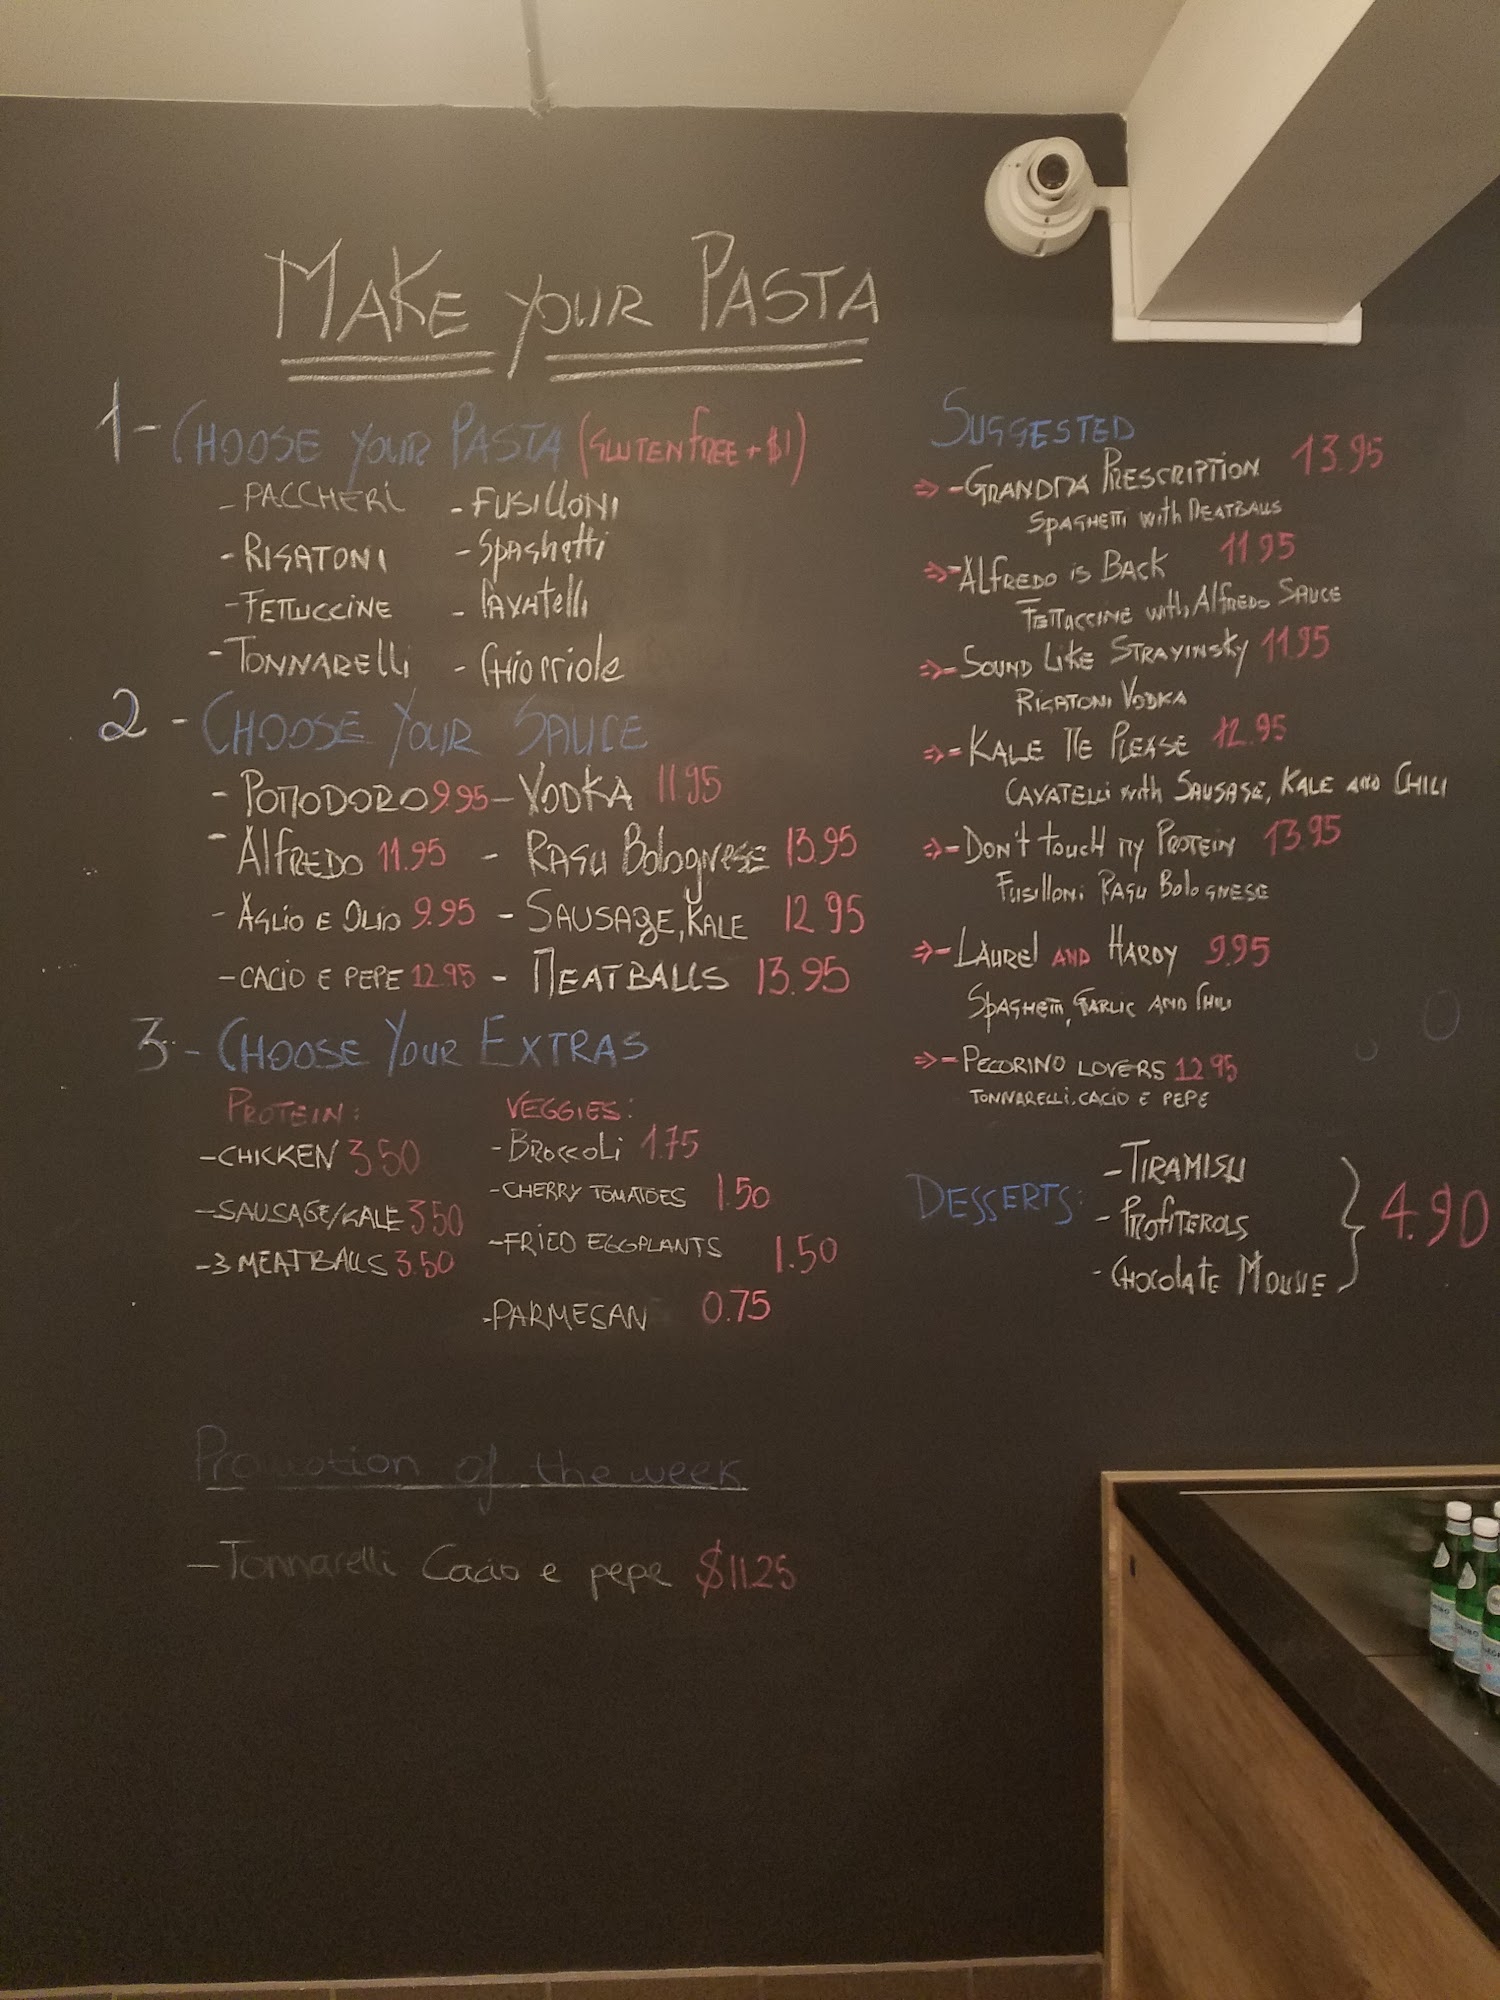 MAKE YOUR PASTA
1 - CHOOSE YOUR PASTA (GLUTEN FREE + $1)
- PACCHERI - FUSILLONI
- RIGATONI - Spaghetti
- FETTUCCINE - CAVAtelli
- TONNARELLI - CHIOCCIOLE
2 - CHOOSE YOUR SAUCE
- POMODORO 9.95 - VODKA 11.95
- ALFREDO 11.95 - RAGU BOLOGNESE 13.95
- AGLIO E OLIO 9.95 - SAUSAGE, KALE 12.95
- CACIO E PEPE 12.95 - MEATBALLS 13.95
3 - CHOOSE YOUR EXTRAS
PROTEIN: VEGGIES:
- CHICKEN 3.50 - BROCCOLI 1.75
- SAUSAGE/KALE 3.50 - CHERRY TOMATOES 1.50
- 3 MEATBALLS 3.50 - FRIED EGGPLANTS 1.50
- PARMESAN 0.75
Promotion of the week
- Tonnarelli Cacio e pepe $11.25
SUGGESTED
=> - GRANDMA PRESCRIPTION 13.95
SPAGHETTI with MEATBALLS
=> - ALFREDO IS BACK 11.95
FETTUCCINE with ALFREDO SAUCE
=> - SOUND LIKE STRAVINSKY 11.95
RIGATONI VODKA
=> - KALE ME PLEASE 12.95
CAVATELLI with SAUSAGE, KALE AND CHILI
=> - DON'T TOUCH MY PROTEIN 13.95
FUSILLONI RAGU BOLOGNESE
=> - LAUREL AND HARDY 9.95
SPAGHETTI, GARLIC AND CHILI
=> - PECORINO LOVERS 12.95
TONNARELLI. CACIO E PEPE
DESSERTS: - TIRAMISU
- PROFITEROLS
- CHOCOLATE MOUSSE
4.90